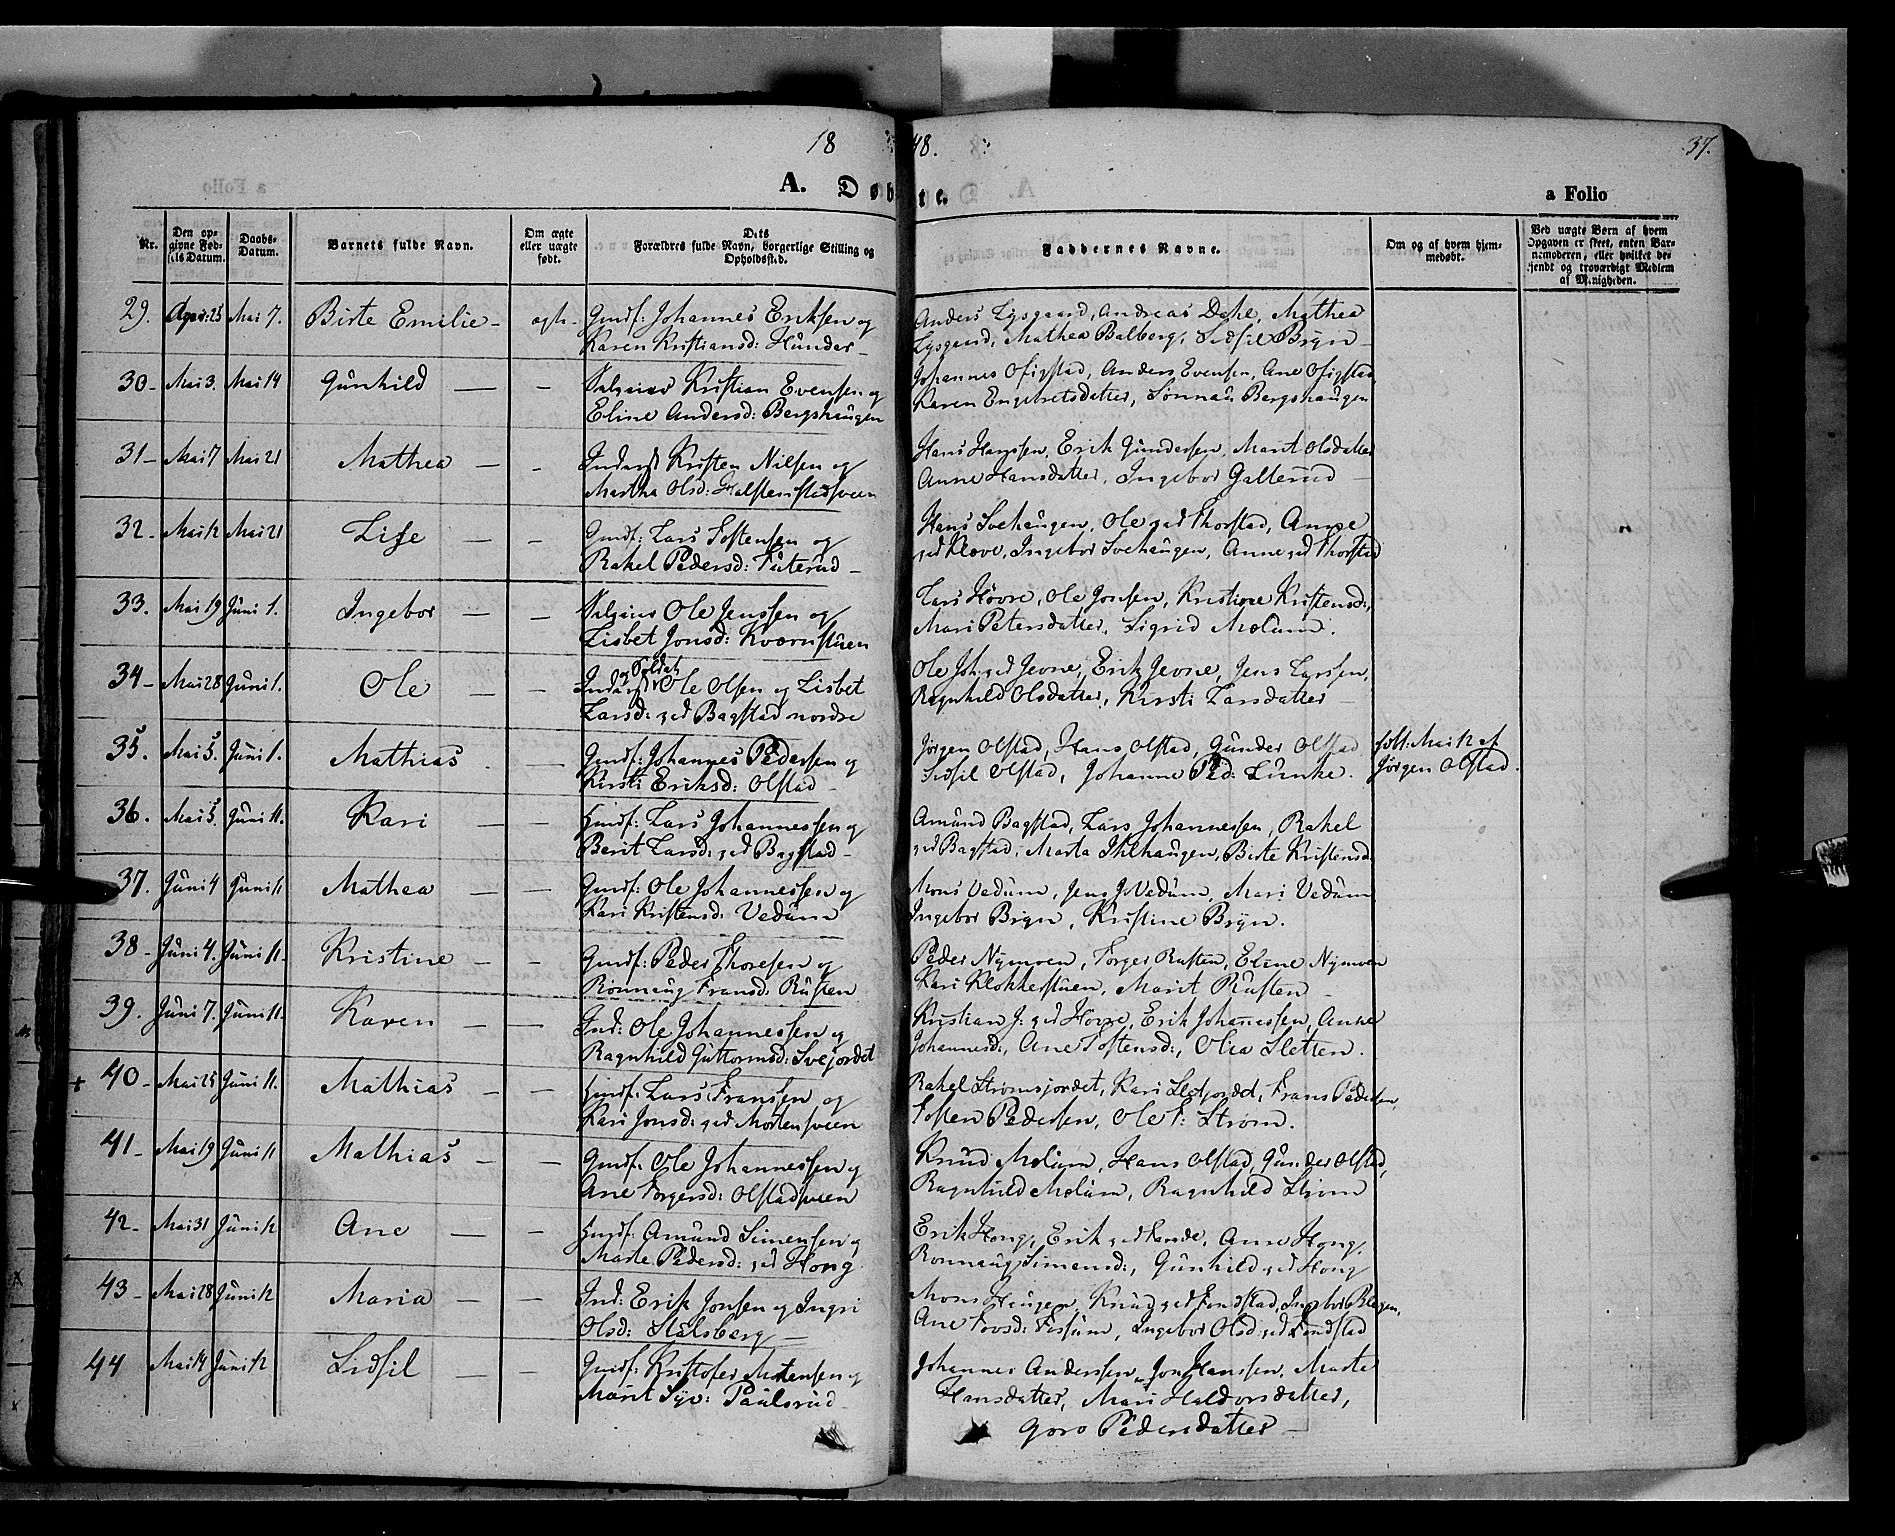 1848. 37.
A. Døbte. a Folio
Nr. Den opgivne Fødsels Datum. Daabs-Datum. Barnets fulde Navn. Om ægte eller uægte født. Dets Forældres fulde Navn, borgerlige Stilling og Opholdssted. Faddernes Navne. Om og af hvem hjemmedøbt. Ved uægte Børn af hvem Opgaven er skeet, enten Barnemoderen, eller hvilket bekjendt og troværdigt Medlem af Menigheden.
29. April 25 Mai 7. Birte Emilie - ægte - Gmdf: Johannes Eriksen og Anders Lysgaard, Andreas Dahle, Mathea
Karen Kristiansd: Hunder - Lysgaard, Mathea Balberg, Sidsil Bryn -
30 - Mai 3. Mai 14 Gunhild — - Kristian Evensen og Johannes Ofigstad, Anders Evensen, Ane Ofigstad
Eline Andersd: Bergshaugen Karen Engebretsdatter, Sønnau Bergshaugen
31 - Mai 7 Mai 21 Mathea — - Inderst Kristen Nilsen og Hans Hanssen, Erik Gundersen, Marit Olsdatter
Martha Olsd: Halstenstadsveen Anne Hansdatter, Ingebor Galterud —
32 - Mai 12 Mai 21 Lise — - Gmdf: Lars Tostensen og Hans Svehaugen, Ole ved Thorstad, Anne
Rakel Pedersd: Futerud - ved Kløve, Ingebor Svehaugen, Anne ved Thorstad
33. Mai 19 Juni 1. Ingebor — - Ole Jenssen og Lars Hovre, Ole Jonsen, Kristine Kristensd:,
Lisbet Jonsd: Kværnstuen Mari Petersdatter, Sigrid Melum.
34 - Mai 28 Juni 1. Ole — - Inderst og Soldat Ole Olsen og Lisbet Ole Joh: ved Jevne, Erik Jevne, Jens Larssen,
Larsd: ved Bagstad nordre Ragnhild Olsdatter, Kirsti Larsdatter —
35. Mai 5. Juni 1. Mathias - — Gmdf: Johannes Pedersen og Jørgen Olstad, Hans Olstad, Gunder Olstad Mai 12 af
Kirsti Eriksd: Olstad - Sidsil Olstad, Johanne Ped: Lunke. Jørgen Olstad.
36. Mai 5. Juni 11. Kari — - Hmdf: Lars Johannessen og Amund Bagstad, Lars Johannessen, Rakel
Berit Larsd: ved Bagstad - ved Bagstad, Marta Ihlhaugen, Birte Kristensd.
37. Juni 4 Juni 11 Mathea — - Gmdf: Ole Johannessen og Mons Vedum, Jens J. Vedum, Mari Vedum
Kari Kristensd: Vedum Ingebor Bryn, Kristine Bryn.
38 - Juni 4. Juni 11. Kristine — - Gmdf: Peder Thoresen og Peder Nymoen, Torger Rusten, Eline Nymoen
Rønnaug Fransd: Rusten Kari Klokkerstuen, Marit Rusten —
39. Juni 7. Juni 11. Karen — - Ind: Ole Johannessen og Kristian J: ved Hovre, Erik Johanessen, Anne
Ragnhild Guttormsd: Svejordet Johannesd:, Ane Tostensd:, Olea Sletten.
+ 40 - Mai 25 Juni 11. Mathias — - Hmdf: Lars Fransen og Rakel Strømsjordet, Kari Sletjordet, Frans Pedersen,
Kari Jonsd: ved Mortensveen Tosten Pedersen, Ole F: Strøm.
41 - Mai 19 Juni 11 Mathias — - Gmdf: Ole Johannessen og Knud Melum, Hans Olstad, Gunder Olstad,
Ane Torgersd: Olstadsveen Ragnhild Melum, Ragnhild Strøm
42 - Mai 31 Juni 12 Ane — - Hmdf: Amund Simensen og Erik Hong, Erik ved Sande, Anne Hong,
Marte Pedersd: ved Hong Rønnaug Simensd:, Gunhild ved Hong
43 - Mai 28 Juni 12 Maria — - Ind: Erik Jonsen og Ingri Mons Haugen, Knud ved Fondstad, Ingebor Bergen,
Olsd: Stalsberg — Ane Tovsd: Fossum, Ingebor Olsd ved Fondstad
44 Mai 14 Juni 12 Sidsil — - Gmdf: Kristofer Mortensen og Johannes Anderssen, Jon Hanssen, Marte
Marit Syv: Paulsrud - Hansdatter, Mari Haldorsdatter,
Goro Pedersdatter —